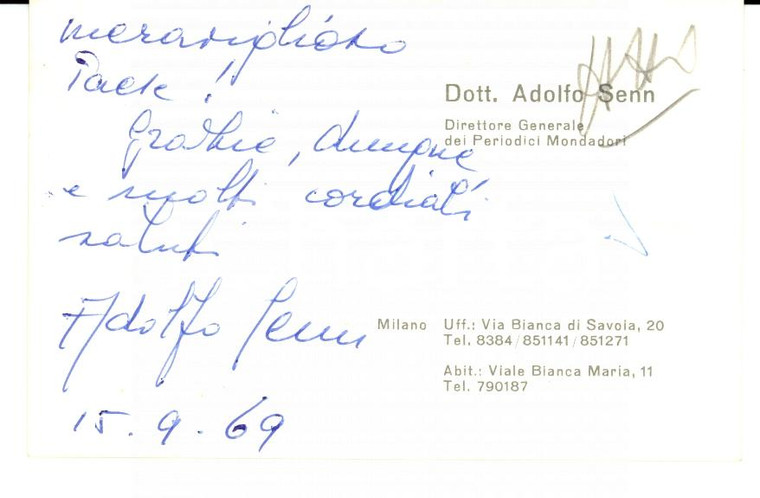 meraviglioso
Pack!
Grazie, dunque
e molti cordiali
saluti
Adolfo Senn
15.9.69
Dott. Adolfo Senn
Direttore Generale
dei Periodici Mondadori
Milano Uff.: Via Bianca di Savoia, 20
Tel. 8384/851141/851271
Abit.: Viale Bianca Maria, 11
Tel. 790187